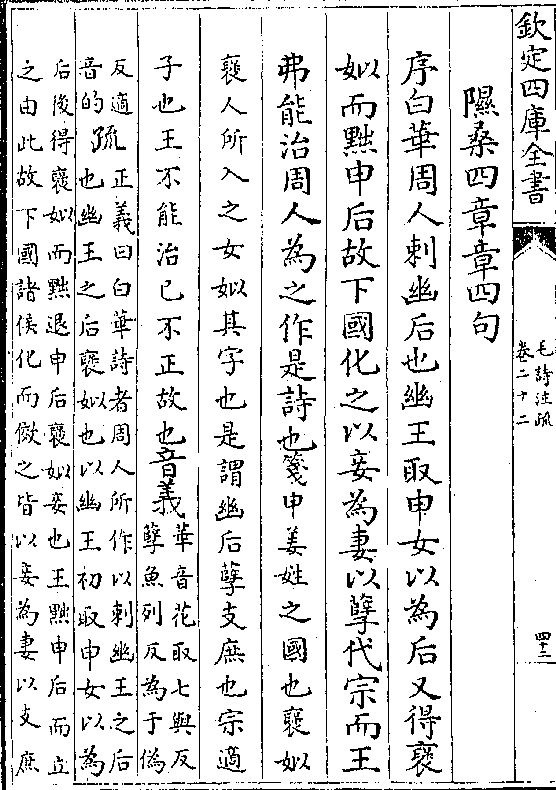 欽定四庫全書
毛詩注疏
卷二十二
四十三
隰桑四章章四句
序白華周人刺幽后也幽王取申女以為后又得褒
姒而黜申后故下國化之以妾為妻以孽代宗而王
弗能治周人為之作是詩也箋申姜姓之國也褒姒
褒人所入之女姒其字也是謂幽后孽支庶也宗適
子也王不能治己不正故也音義華音花取七與反
孽魚列反為于偽
反適
音的疏正義曰白華詩者周人所作以刺幽王之后
也幽王之后褒姒也以幽王初取申女以為
后後得褒姒而黜退申后褒姒妾也王黜申后而立
之由此故下國諸侯化而傚之皆以妾為妻以支庶